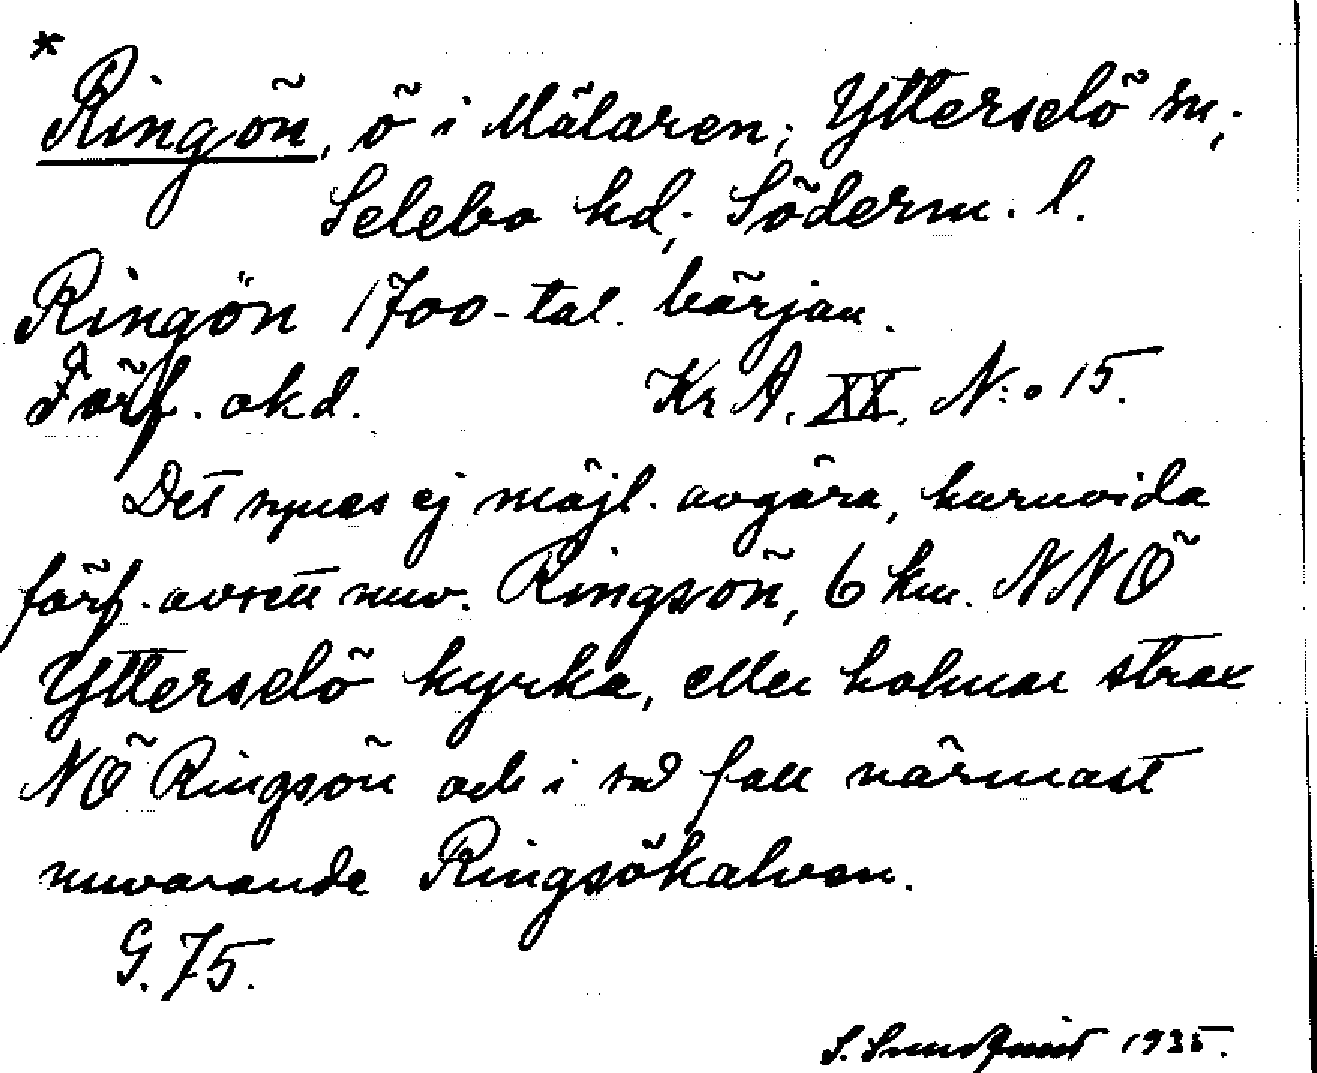 *
Ringön, ö i Mälaren; Ytterselö sn;
Selebo hd; Söderm. l.
Ringön 1700-tal. början.
Förf. okd. Kr A. XX. N:o 15.
Det synes ej möjl. avgöra, huruvida
förf. avsett nuv. Ringsön, 6 km. NNÖ
Ytterselö kyrka, eller holmar strax
NÖ Ringsön och i så fall närmast
nuvarande Ringsökalven.
G. 75.
S. Sundqvist 1935.